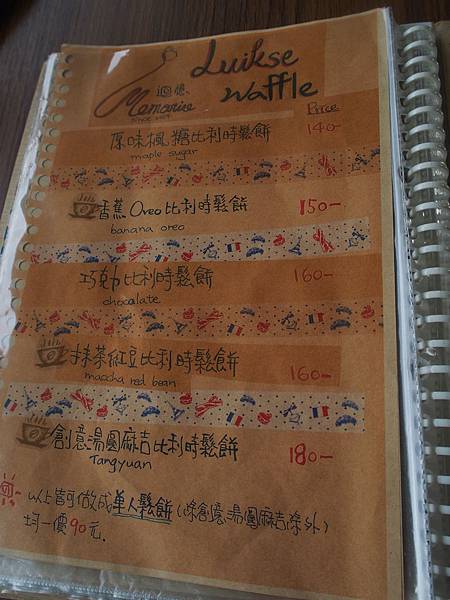 Luikse
迴憶
Memorise
Waffle
SINCE 2009
Price
原味楓糖比利時鬆餅 140-
maple sugar
香蕉Oreo比利時鬆餅 150-
banana oreo
巧克力比利時鬆餅 160-
chocolate
抹茶紅豆比利時鬆餅 160-
maccha red bean
創意湯圓麻吉比利時鬆餅 180-
Tangyuan
以上皆可做成单人鬆餅(除創意湯圓麻吉除外)
均一價90元.